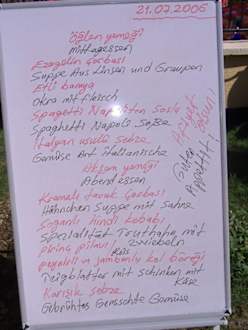 21.07.2006
Öğlen yemeği
Mittagessen
Ezogelin Çorbası
Suppe Aus Linsen und Graupen
Etli bamya
Okra mit Fleisch
Spagetti Napoliten Soslu
Spaghetti Napoli Soße
İtalyan usulü sebze
Gemüse Art Italianische
Afiyet olsun!
Guten Appetit!
Akşam yemeği
Abendessen
Kremalı tavuk Çorbası
Hähnchen Suppe mit Sahne
Soğanlı hindi kebabı
Spezialität Truthahn mit zwiebeln
pirinç pilavı
Reis
peynirli ve jambonlu kol böreği
Teigblätter mit schinken mit Käse
Karışık sebze
Gebrühtes Gemischte Gemüse